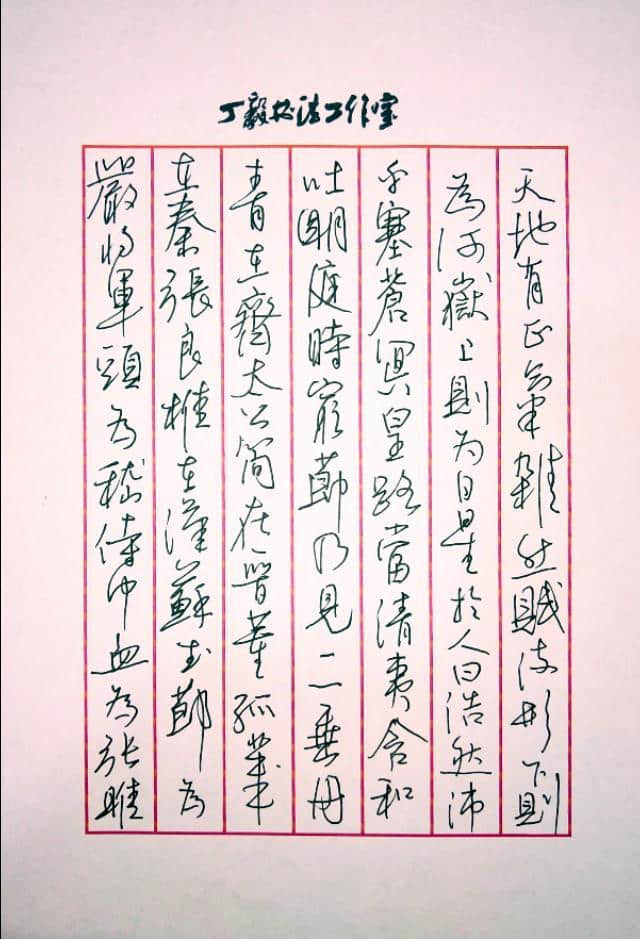 丁毅书法工作室
天地有正氣雜然賦流形下則
為河嶽上則为日星於人曰浩然沛
乎塞蒼冥皇路當清夷含和
吐明庭時窮節乃見一一垂丹
青在齊太公简在晉董狐筆
在秦張良椎在漢蘇武節为
嚴将軍頭为嵇侍中血為张睢